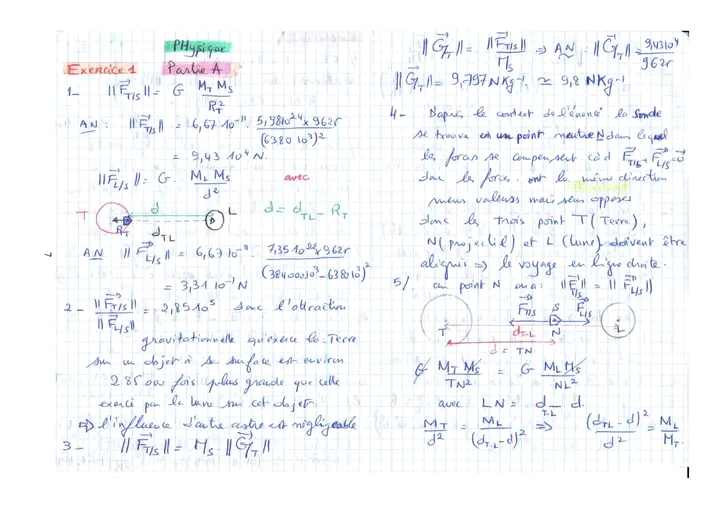 PHysique
Exercice 1 Partie A
1- ||F⃗T/S|| = G MT MS / RT²
AN : ||F⃗T/S|| = 6,67 10⁻¹¹. 5,98 10²⁴ x 9625 / (6380 10³)²
= 9,43 10⁴ N.
||F⃗L/S|| = G. ML MS / d² avec
T d L d = dTL - RT
RT dTL
AN ||F⃗L/S|| = 6,67 10⁻¹¹. 7,35 10²² x 9625 / (384000 10³ - 6380 10³)²
= 3,31 10⁻¹ N
2- ||F⃗T/S|| / ||F⃗L/S|| = 2,85 10⁵ donc l'attraction
gravitationnelle qu'exerce la Terre
sur un objet à sa surface est environ
285 000 fois plus grande que celle
exercé par la lune sur cet objet.
⇒ l'influence d'autre astre est négligeable
3- ||F⃗T/S|| = MS . ||G⃗T||
||G⃗T|| = ||F⃗T/S|| / MS ⇒ AN : ||G⃗T|| = 9,43 10⁴ / 9625
||G⃗T|| = 9,797 N Kg⁻¹. ≃ 9,8 N Kg⁻¹
4- D'après le context de l'énoncé la sonde
se trouve en un point neutre N dans lequel
les forces se compensent càd F⃗T/S + F⃗L/S = 0⃗
donc les forces ont la même direction
mens valeurs mais sens opposes
donc les trois point T (Terre),
N (projectil) et L (lune) doivent être
aligniés ⇒ le voyage en ligne droite.
5/ au point N on a : ||F⃗T/S|| = ||F⃗L/S||
F⃗T/S S F⃗L/S
T dT-L N L
d = TN
G MT MS / TN² = G ML MS / NL²
avec LN = dT-L - d.
MT / d² = ML / (dT-L - d)² ⇒ (dTL - d)² / d² = ML / MT.